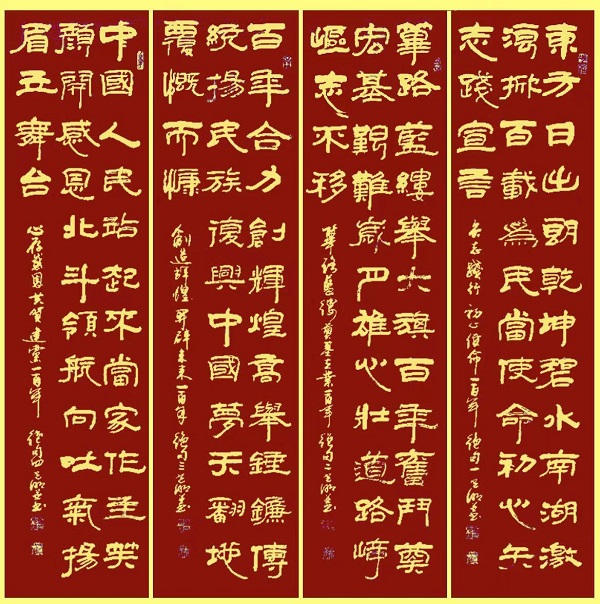 東方日出朗乾坤碧水南湖激
漪掀百載為民當使命初心矢
志踐宣言
矢志踐行初心使命一百年絕句一
蓽路藍縷舉大旗百年奮鬥奠
宏基艱難歲月雄心壯道路崎
嶇志不移
蓽路藍縷奠基立業百年絕句二
百年合力創輝煌高舉錘鐮傳
統揚民族復興中國夢天翻地
覆慨而慷
創造輝煌開闢未來一百年絕句三
中國人民站起來當家作主笑
顏開感恩北斗領航向吐氣揚
眉五舞台
心存感恩共賀建黨一百年絕句四